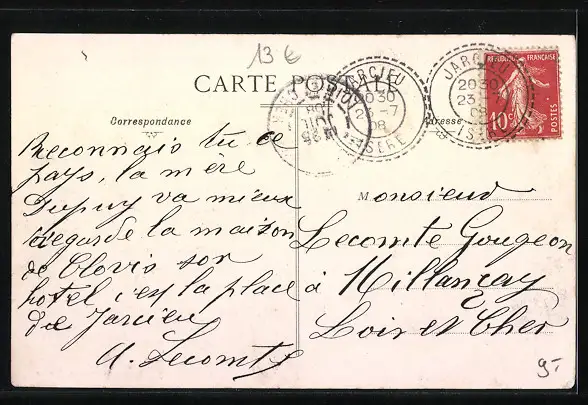 13 €
CARTE POSTALE
Correspondance
Adresse
JARCIEU
2030
23-7
08
ISERE
JARCIEU
2030
08
ISERE
REPUBLIQUE FRANÇAISE
10c
POSTES
Reconnais tu ce
pays, la mère
Dupuy va mieux
Regarde la maison
de Clovis son
hotel c'est la place
de Jarcieu
A. Lecomte
Monsieur
Lecomte Gougeon
à Millançay
Loir et Cher
9-